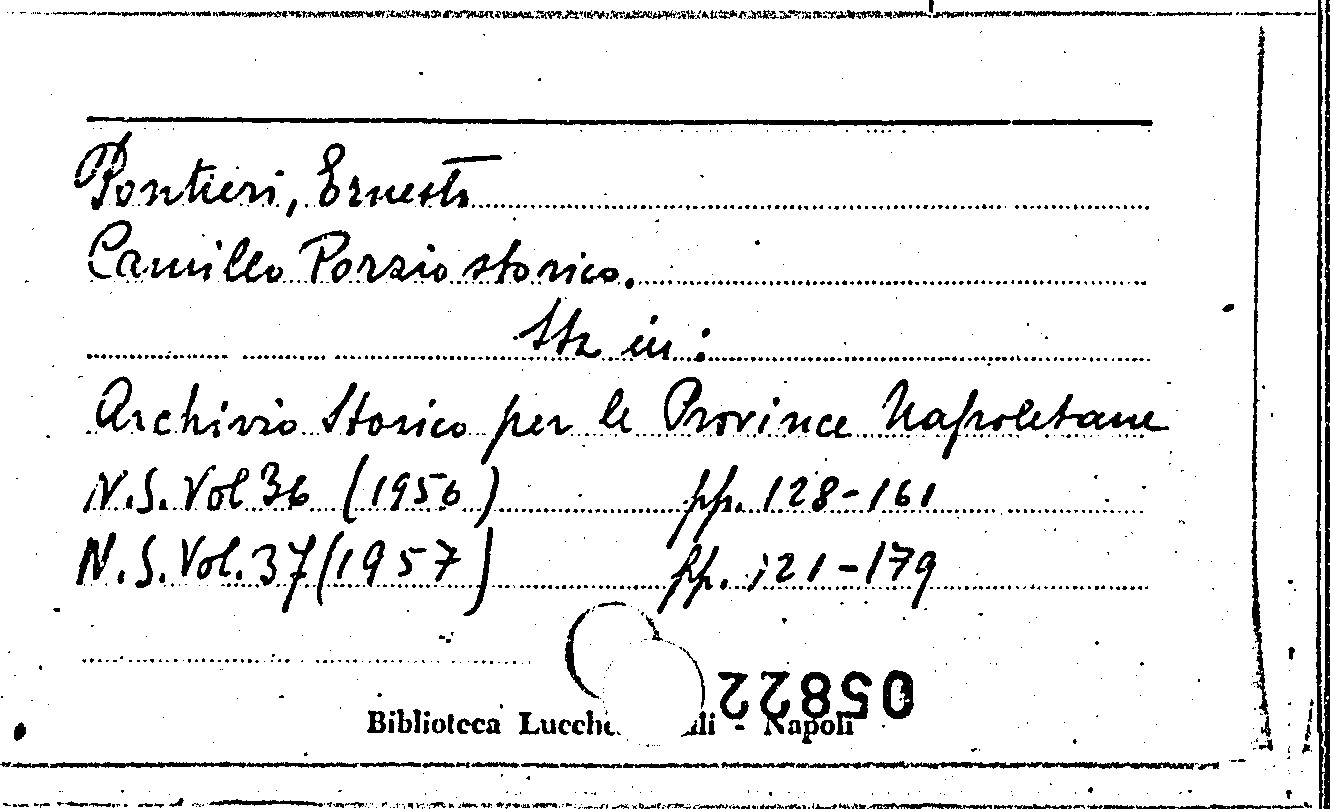 Pontieri, Ernesto
Camillo Porzio storico.
Sta in:
Archivio Storico per le Province Napoletane
N.S. Vol 36 (1956) pp. 128-161
N.S. Vol. 37 (1957) pp. 121-179
05822
Biblioteca - Napoli